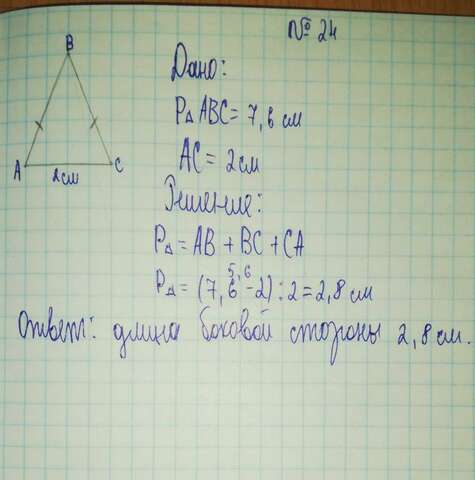 № 24
B
A
C
2 см
Дано:
P△ ABC = 7,6 см
AC = 2 см
Решение:
P△ = AB + BC + CA
5,6
P△ = (7,6 - 2) : 2 = 2,8 см
Ответ: длина боковой стороны 2,8 см.